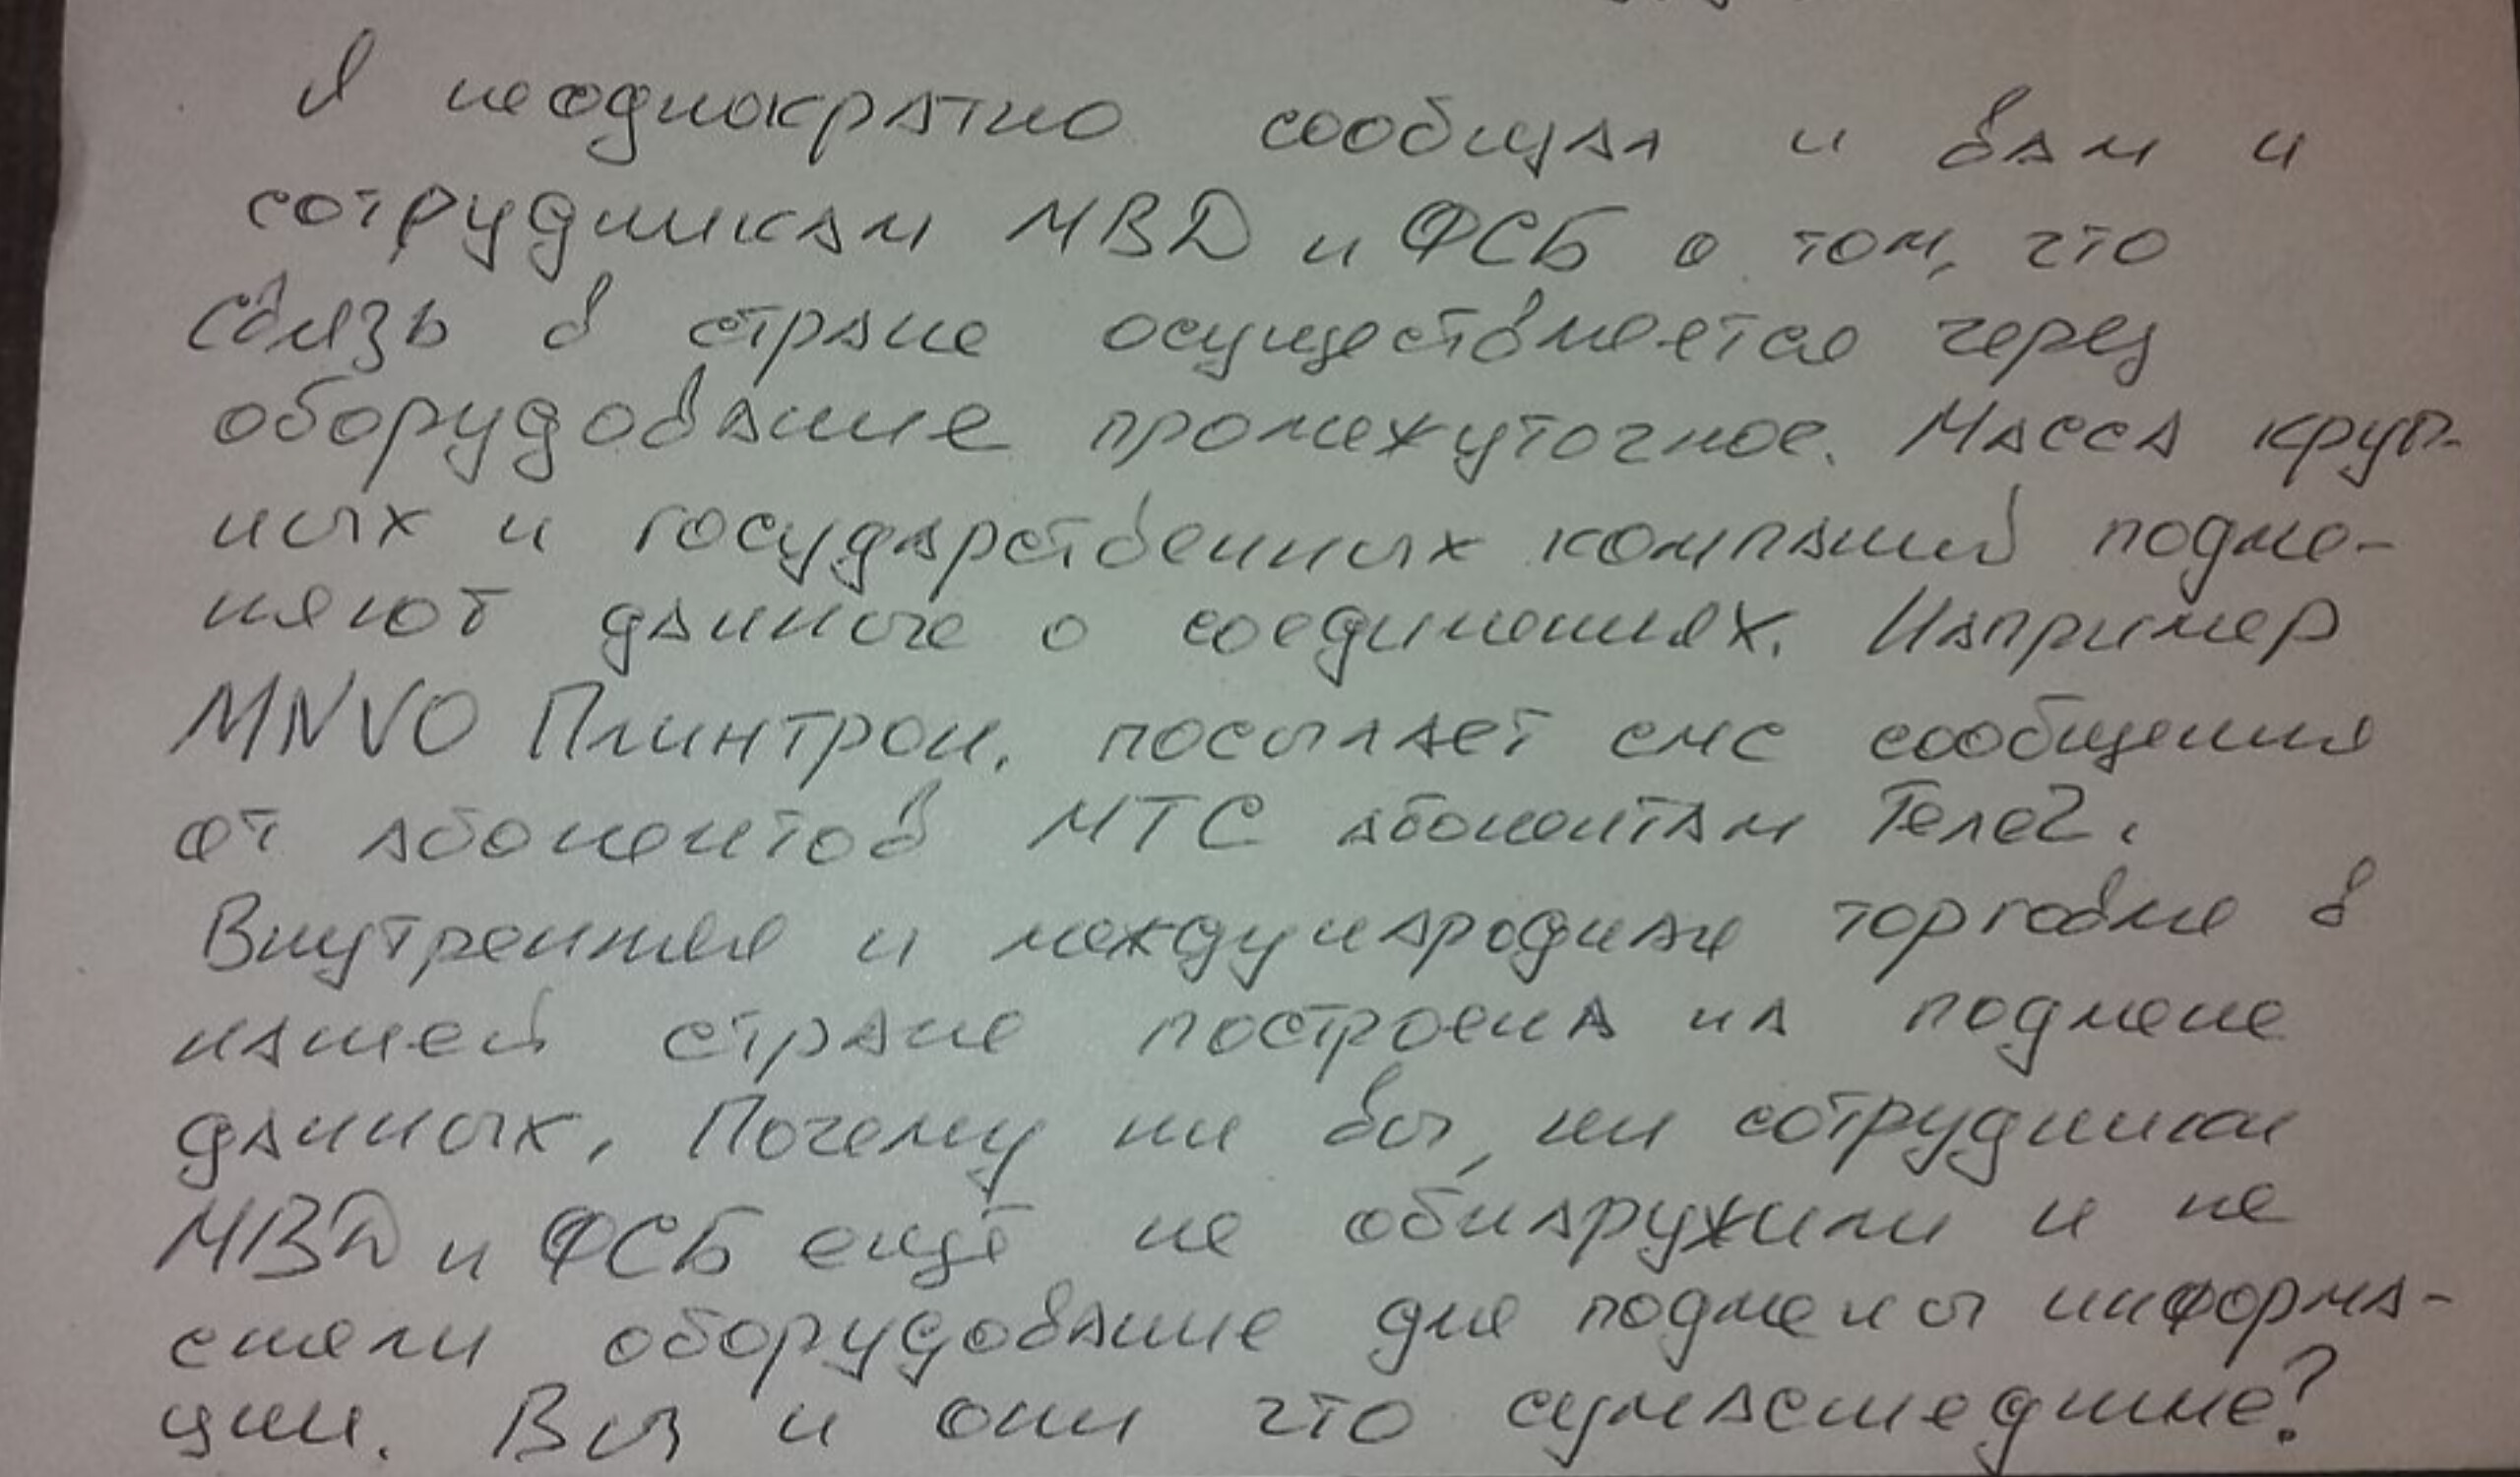 Я неоднократно сообщал и вам и
сотрудникам МВД и ФСБ о том, что
связь в стране осуществляется через
оборудование промежуточное. Масса круп-
ных и государственных компаний подме-
няют данные о соединениях. Например
MNVO Плинтрон, посылает смс сообщения
от абонентов МТС абонентам Теле2.
Внутренняя и международная торговля в
нашей стране построена на подмене
данных. Почему ни вы, ни сотрудники
МВД и ФСБ ещё не обнаружили и не
сняли оборудование для подмены информа-
ции. Вы и они что сумасшедшие?